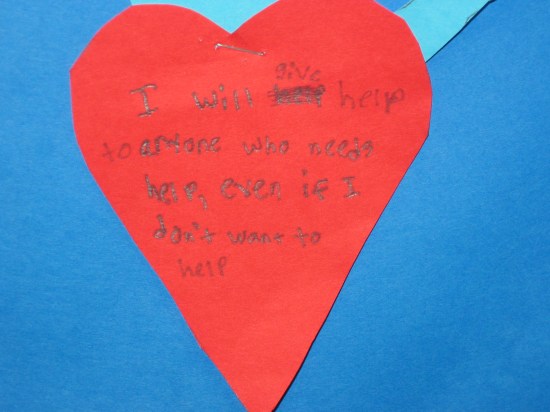 give
I will help help
to anyone who needs
help, even if I
don't want to
help